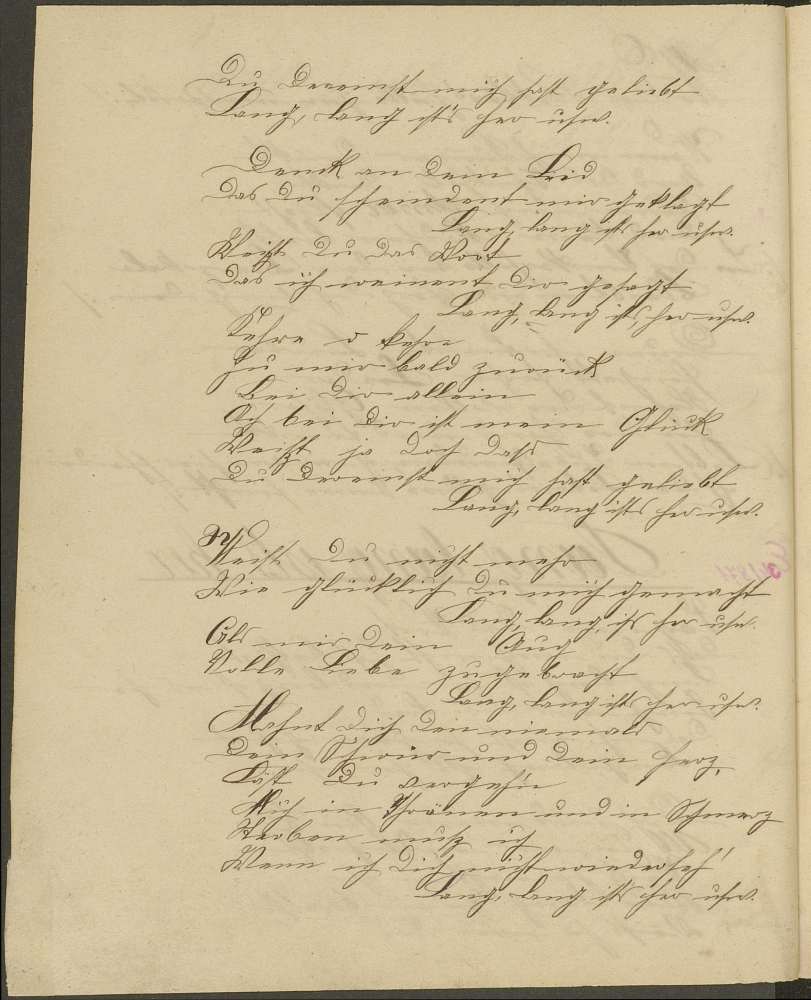 Du dereinst mich hast geliebt
Lang, lang ist's her usw.
Denck an dein Leid
Das du scheindent mir geklagt
Lang, lang ists her usw.
Weißt du das Wort
Das ich weinent dir gesagt
Lang, lang ists her usw.
Kehre o kehre
Zu mir bald zurück
Bei dir allein
Ach bei dir ist mein Glück
Weißt ja doch dass
Du dereinst mich hast geliebt
Lang, lang ists her usw.
Weist du nicht mehr
Wie glücklich du mich gemacht
Lang, lang ists her usw.
Als mir dein Aug
Volle Liebe zugebracht
Lang, lang ists her usw.
Mahnt dich den niemals
Dein Schwur und dein Herz,
Läßt du vergehn
Mich in Thränen und in Schmerz
Sterben muß ich
Wenn ich dich nicht wiederseh'
Lang, lang ists her usw.